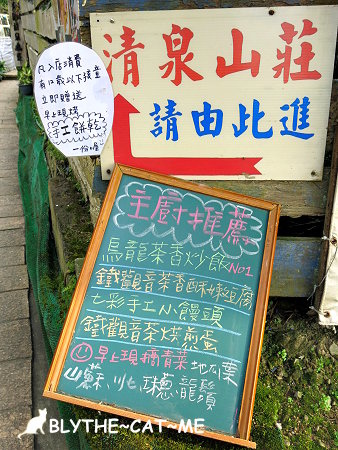 清泉山莊
請由此進
凡入店消費
有口敢以下孩童
立即贈送
早上現烤
手工餅乾
一份喔
主廚推薦
烏龍茶香炒飯NO1
鐵觀音茶香酥嫩豆腐
七彩手工小饅頭
鐵觀音茶烘煎蛋
早上現摘青菜 地瓜葉
山蘇、川七、龍鬚
BLYTHE~CAT~ME